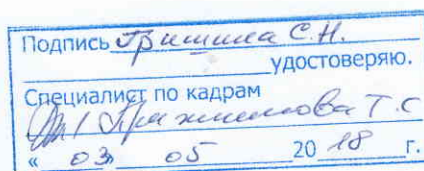 Подпись Гришина С.Н.
удостоверяю.
Специалист по кадрам
Т.С
« 03 » 05 2018 г.